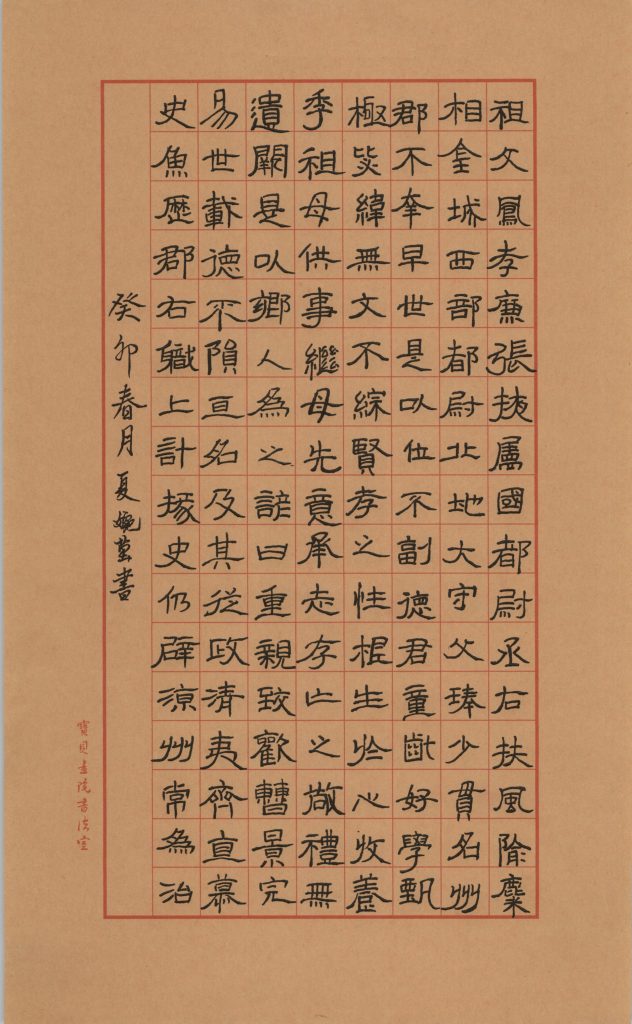 祖父鳳孝廉張掖屬國都尉丞右扶風隃麋
相金城西部都尉北地大守父琫少貫名州
郡不幸早世是以位不副德君童齔好學甄
極毖緯無文不綜賢孝之性根生於心收養
季祖母供事繼母先意承志存亡之敬禮無
遺闕是以鄉人為之諺曰重親致歡曹景完
易世載德不隕其名及其從政清夷齊直慕
史魚歷郡右職上計掾史仍辟涼州常為治
癸卯春月夏婉萤書
寶貝畫院書法室